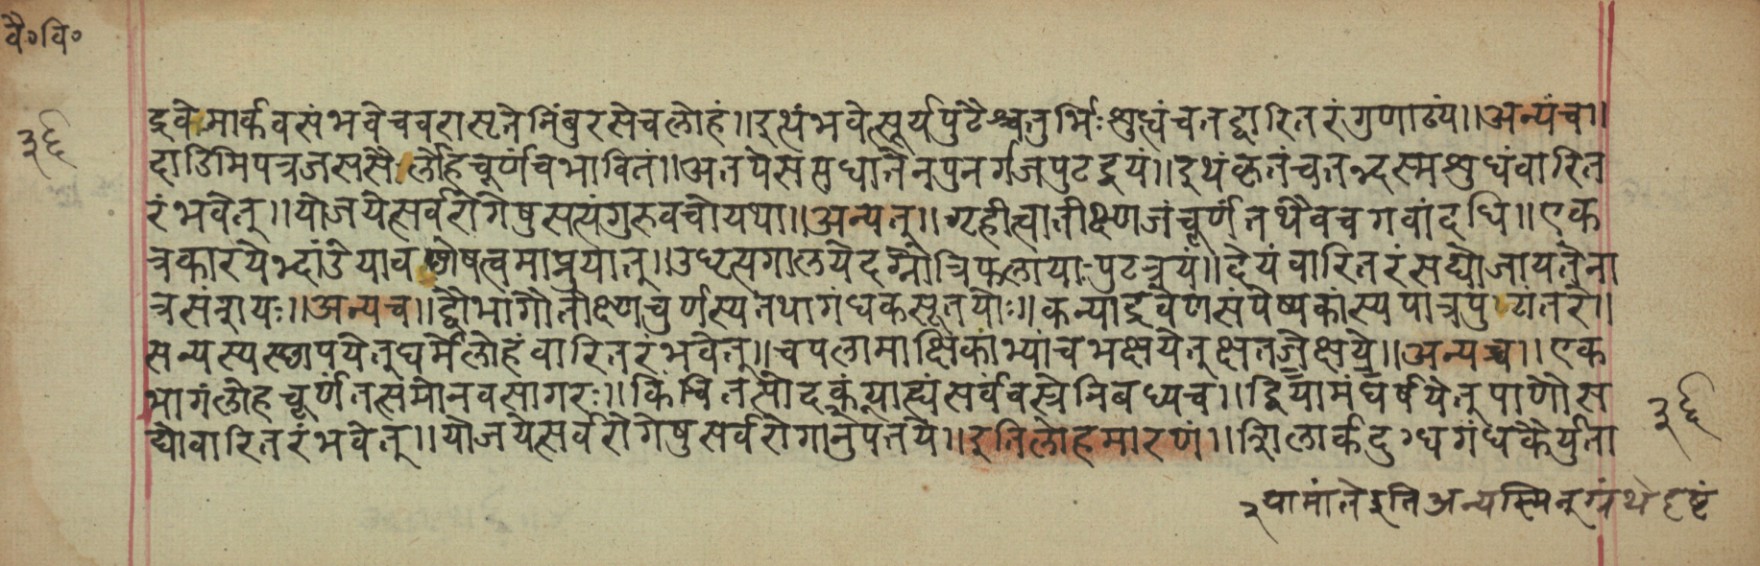 वै०वि०
द्रवे मार्कवसंभवे चवरासृते निंबुरसे चलोहं॥इत्थं भवेत्सूर्यपुटैश्चतुर्भिःशुध्वं च तद्वारितरंगुणाढ्यं॥अन्यंच॥
३६
दाडिमिपत्रजरसै र्लौहचूर्णं च भावितं॥अतपेसंसधातेनपुनर्गजपुटद्वयं॥इथं कृतंचतन्द्स्मशुधंवारित
रंभवेत्॥योजयेत्सर्वरोगेषुसत्यंगुरुवचोयथा॥अन्यत्॥गृहीत्वातीक्ष्णजंचूर्णं तथैवचगवांदधि॥एक
त्रकारयेभ्दांडेयाव शोषत्वमाप्नुयात्॥उधृत्यगालयेदग्नौत्रिफलायाःपुटत्रयं॥देयं वारितरंसद्योजायतेना
त्रसंशयः॥अन्यच॥द्वौभागौतीक्ष्णचुर्णस्यतथागंधकसूतयोः॥कन्याद्रवेणसंपेष्यकांस्यपात्रपुटांतरे॥
सन्यस्यस्छापयेतुघर्मेलोहंवारितरंभवेत्॥चपलामाक्षिकाभ्यांचभक्षयेत्क्षतजेक्षये॥अन्यच्च॥एक
भागंलोहचूर्णंतत्समोनवसागरः॥किंचितत्सोदकंग्राह्यंसर्ववस्त्रेनिबध्यच॥द्वियामंघर्षयेत्पाणौस
द्योवारितरंभवेत्॥योजयेत्सर्वरोगेषुसर्वरोगानुपत्तये॥इतिलोहमारणं॥शिलार्कदुग्धगंधकैर्युता
३६
२ यामांतेइतिअन्यस्मिन्ग्रंथेदृष्टं